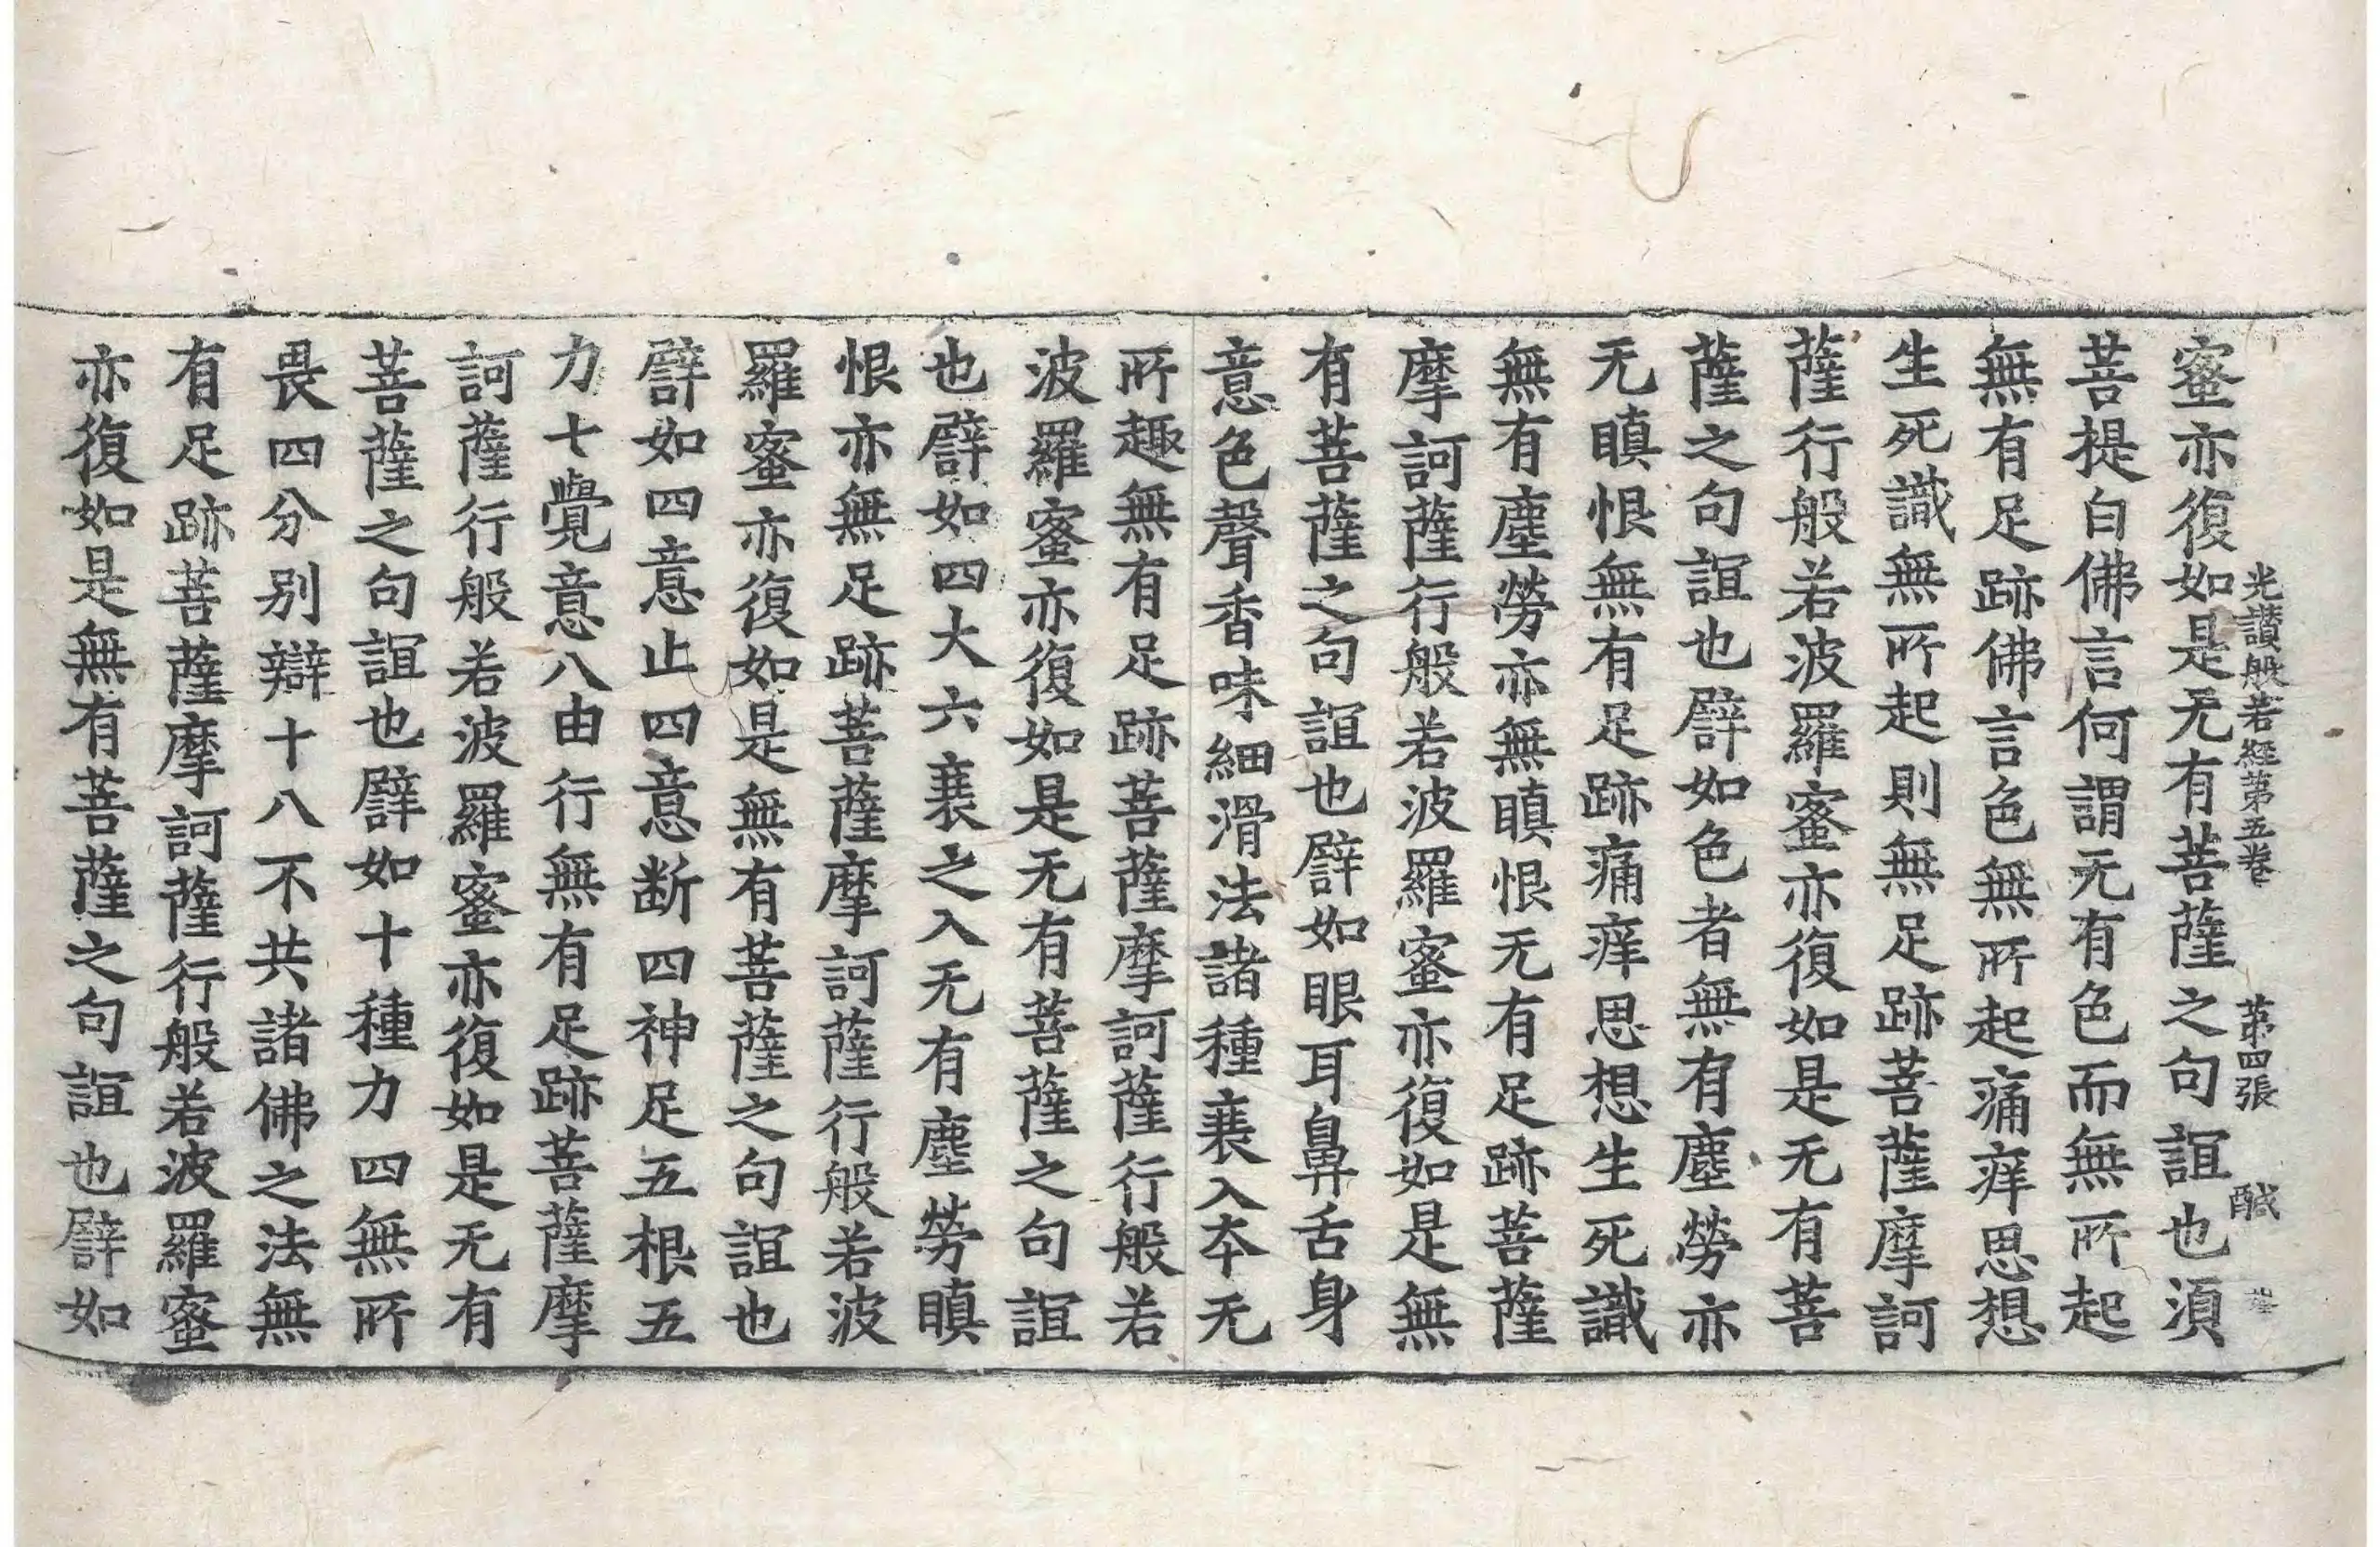 光讃般若經第五卷 第四張 醎
蜜亦復如是无有菩薩之句誼也須
菩提白佛言何謂无有色而無所起
無有足跡佛言色無所起痛痒思想
生死識無所起則無足跡菩薩摩訶
薩行般若波羅蜜亦復如是无有菩
薩之句誼也譬如色者無有塵勞亦
无瞋恨無有足跡痛痒思想生死識
無有塵勞亦無瞋恨无有足跡菩薩
摩訶薩行般若波羅蜜亦復如是無
有菩薩之句誼也譬如眼耳鼻舌身
意色聲香味細滑法諸種衰入本无
所趣無有足跡菩薩摩訶薩行般若
波羅蜜亦復如是无有菩薩之句誼
也譬如四大六衰之入无有塵勞瞋
恨亦無足跡菩薩摩訶薩行般若波
羅蜜亦復如是無有菩薩之句誼也
譬如四意止四意断四神足五根五
力七覺意八由行無有足跡菩薩摩
訶薩行般若波羅蜜亦復如是无有
菩薩之句誼也譬如十種力四無所
畏四分别辯十八不共諸佛之法無
有足跡菩薩摩訶薩行般若波羅蜜
亦復如是無有菩薩之句誼也譬如